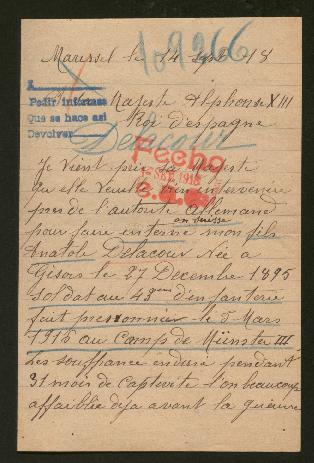 Marissel le 14 sept 18
109266
A
Pedir informes
Que se hace asi
Devolver
Majeste Alphonse XIII
Roi d'espagne
Delacour
Fecha
1918
Je Vient prié sa Majeste
qu elle veuille bien intervenire
pres de l'autorite Allemand
en suisse
pour faire interné mon fils
Anatole Delacour Née a
Gisors le 27 Decembre 1895
soldat au 43eme d'enfanterie
fait pressonnier le 5 Mars
1916 au Camp de Münster III
Les souffrance enduré pendant
31 mois de captevité l'on beaucoup
affaiblie deja avant la guerre